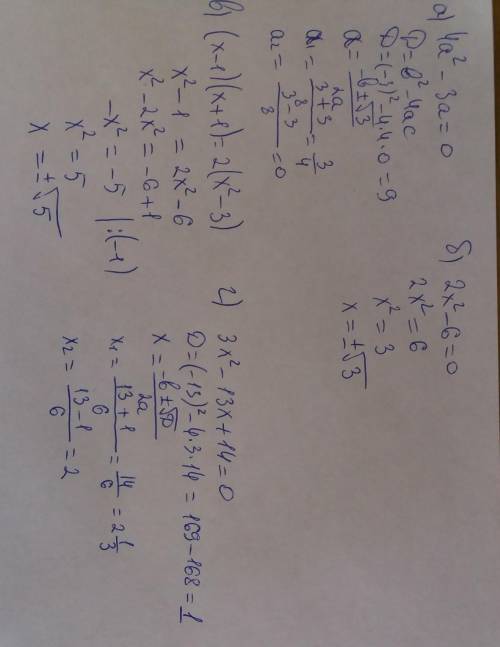 а) 4a² - 3a = 0
D = b² - 4ac
D = (-3)² - 4·4·0 = 9
x = (-b ± √3)/2a
a₁ = (3+3)/8 = 3/4
a₂ = (3-3)/8 = 0
б) 2x² - 6 = 0
2x² = 6
x² = 3
x = ±√3
в) (x-1)(x+1) = 2(x² - 3)
x² - 1 = 2x² - 6
x² - 2x² = -6 + 1
-x² = -5 |:(-1)
x² = 5
x = ±√5
г) 3x² - 13x + 14 = 0
D = (-13)² - 4·3·14 = 169 - 168 = 1
x = (-b ± √D)/2a
x₁ = (13+1)/6 = 14/6 = 2 1/3
x₂ = (13-1)/6 = 2